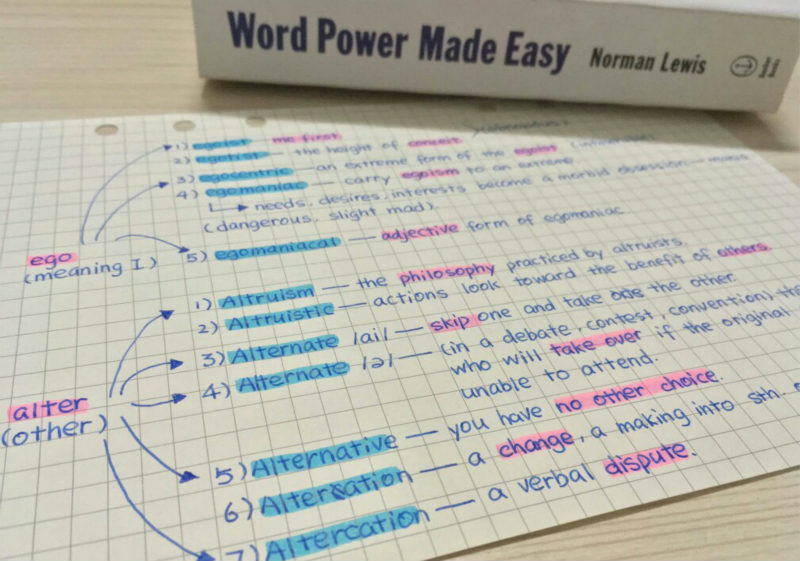 Word Power Made Easy Norman Lewis
1) egoist — me first
2) egotist — the height of conceit
3) egocentric — an extreme form of the egoist
4) egomaniac — carry egoism to an extreme
needs, desires, interests become a morbid obsession
(dangerous, slight mad).
ego
(meaning I)
5) egomaniacal — adjective form of egomaniac
1) Altruism — the philosophy practiced by altruists.
2) Altruistic — actions look toward the benefit of others.
3) Alternate /ai/ — skip one and take one the other.
4) Alternate /ə/ — (in a debate, contest, convention) the
who will take over if the original
unable to attend.
alter
(other)
5) Alternative — you have no other choice.
6) Alteration — a change, a making into sth.
7) Altercation — a verbal dispute.